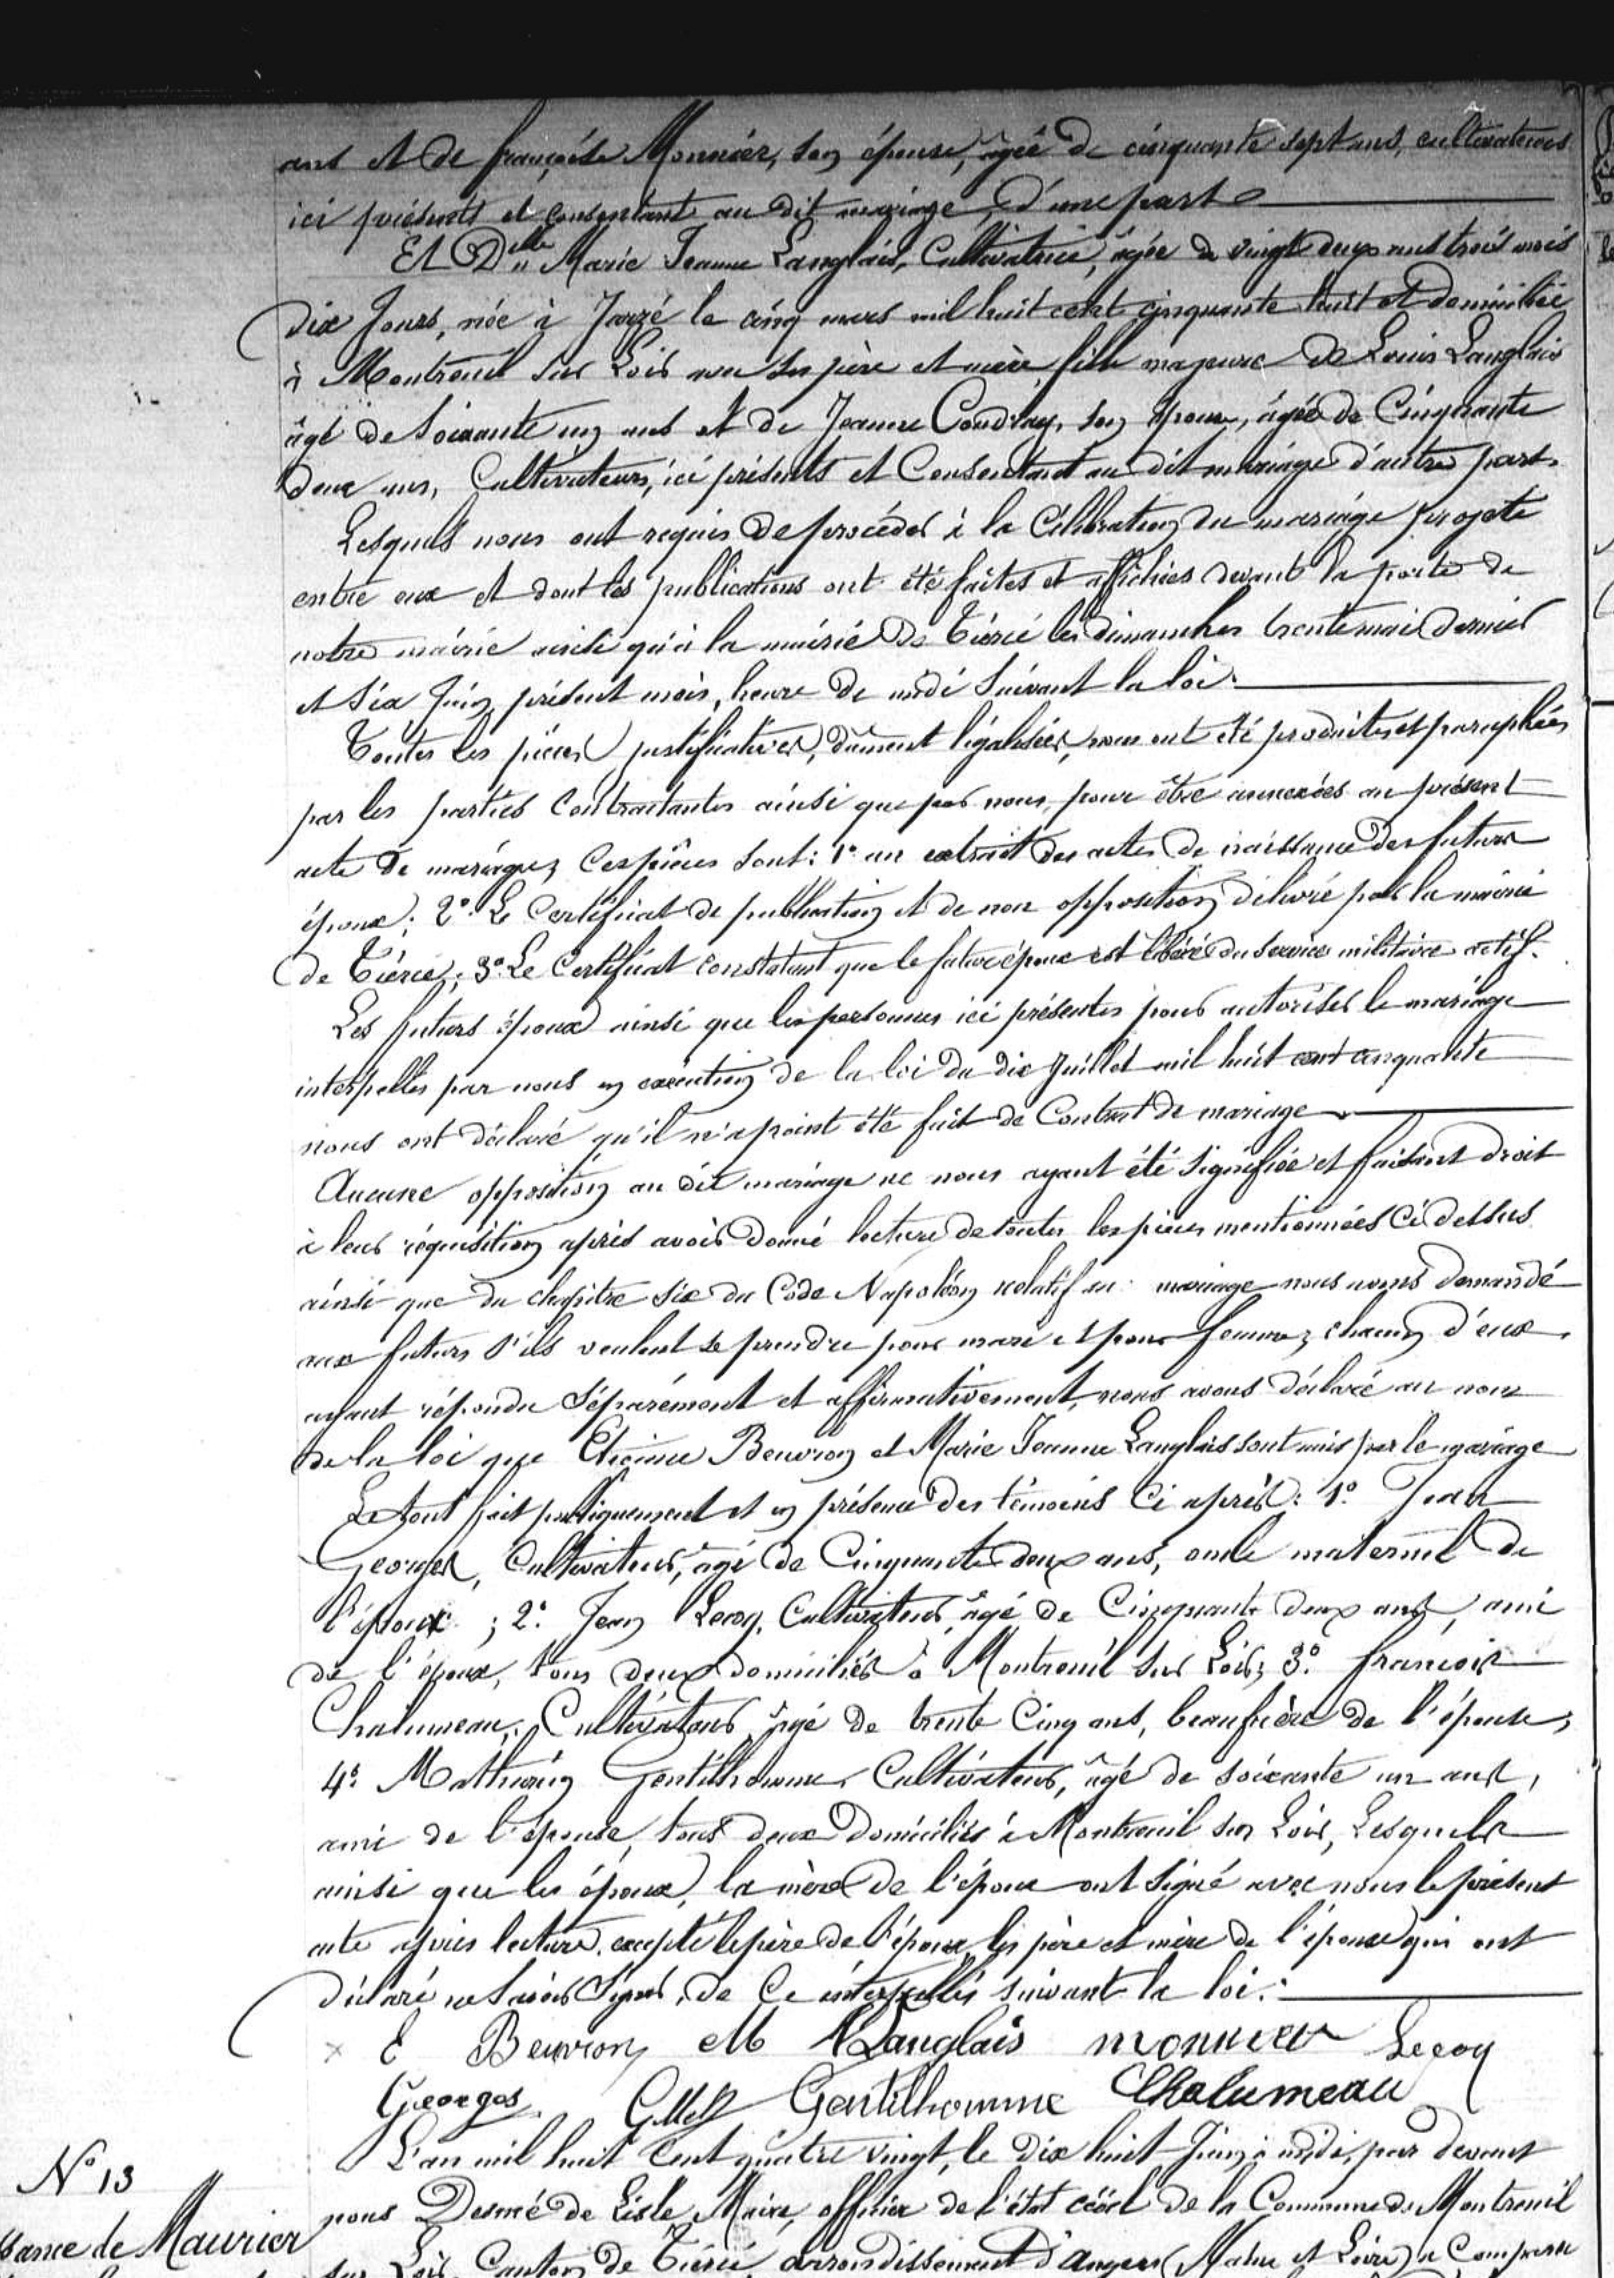 ans et de françoise Monnier, son épouse, âgée de cinquante sept ans, cultivateurs
ici présents et consentant au dit mariage, d'une part
Et D<sup>elle</sup> Marie Jeanne Langlais, Cultivatrice, âgée de vingt deux ans trois mois
dix Jours, née à Jarzé le cinq mars mil huit cent cinquante huit et domiciliée
à Montreuil sur Loir avec ses père et mère, fille majeure de Louis Langlais
âgé de soixante un ans et de Jeanne Coudray, son épouse, âgée de Cinquante
deux ans, Cultivateurs, ici présents et Consentant au dit mariage d'autre part.
Lesquels nous ont requis de procéder à la Célébration du mariage projeté
entre eux et dont les publications ont été faites et affichées devant la porte de
notre mairie ainsi qu'à la mairie de Tiercé les dimanches trente mai dernier
et six Juin, présent mois, heure de midi suivant la loi.
Toutes les pièces justificatives, dûment légalisées, nous ont été produites et paraphées
par les parties Contractantes ainsi que par nous, pour être annexées au présent
acte de mariage; Ces pièces sont: 1° un extrait des actes de naissance des futurs
époux; 2° Le Certificat de publication et de non opposition délivré par la mairie
de Tiercé; 3° Le Certificat constatant que le futur époux est libéré du service militaire actif.
Les futurs époux ainsi que les personnes ici présentes pour autoriser le mariage
interpellés par nous en exécution de la loi du dix Juillet mil huit cent cinquante
nous ont déclaré qu'il n'a point été fait de Contrat de mariage
Aucune opposition au dit mariage ne nous ayant été signifiée et faisant droit
à leur réquisition après avoir donné lecture de toutes les pièces mentionnées Ci dessus
ainsi que du chapitre six du Code Napoléon relatif au mariage nous avons demandé
aux futurs s'ils veulent se prendre pour mari et pour femme; chacun d'eux
ayant répondu séparément et affirmativement, nous avons déclaré au nom
de la loi que Etienne Beuvron et Marie Jeanne Langlais sont unis par le mariage
Le tout fait publiquement et en présence des témoins Ci après: 1° Jean
Georges, Cultivateur, âgé de Cinquante deux ans, oncle maternel de
l'époux; 2° Jean Lecoq, Cultivateur, âgé de Cinquante deux ans, ami
de l'époux, tous deux domiciliés à Montreuil sur Loir; 3° françois
Chalumeau, Cultivateur, âgé de trente Cinq ans, beaufrère de l'épouse;
4° Mathurin Gentilhomme, Cultivateur, âgé de soixante un ans,
ami de l'épouse, tous deux Domiciliés à Montreuil sur Loir, Lesquels
ainsi que les époux, la mère de l'époux ont signé avec nous le présent
acte après lecture, excepté le père de l'époux, les père et mère de l'épouse qui ont
déclaré ne savoir signer, de Ce interpellés suivant la loi.
E Beuvron M Langlais monnier Lecoq
Georges Gentilhomme Chalumeau
N° 13
L'an mil huit Cent quatre vingt, le dix huit Juin, à midi, par devant
nous Desmé de Lisle, Maire, officier de l'état civil de la Commune de Montreuil
ssance de Maurier
sur Loir, Canton de Tiercé, arrondissement d'Angers (Maine et Loire) a Comparu